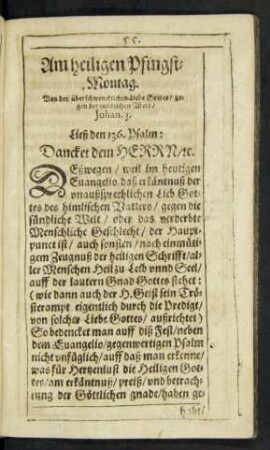 55.
Am heiligen Pfingst-
Montag.
Von der überschwencklichen Liebe Gottes / ge-
gen der sündlichen Welt /
Johan. 3.
Ließ den 136. Psalm:
Dancket dem HERRN/ꝛc.
DEßwegen / weil im heutigen
Euangelio daß erkäntnuß der
vnaußsprechlichen Lieb Got-
tes des himlischen Vatters / gegen die
sündliche Welt / oder das verderbte
Menschliche Geschlecht / der Haupt-
punct ist / auch sonsten / nach einmüti-
gem Zeugnuß der heiligen Schrifft / al-
ler Menschen Heil zu Leib vnnd Seel /
auff der lautern Gnad Gottes stehet:
(wie dann auch der H. Geist sein Trö-
sterampt eigentlich durch die Predigt /
von solcher Liebe Gottes / außrichtet)
So bedencket man auff diß Fest / neben
dem Euangelio / gegenwertigen Psalm
nicht vnfüglich / auff daß man erkenne /
was für Hertzenlust die Heiligen Got-
tes / am erkäntnuß / preiß / vnd betrach-
tung der Göttlichen gnade / haben ge-
habt /